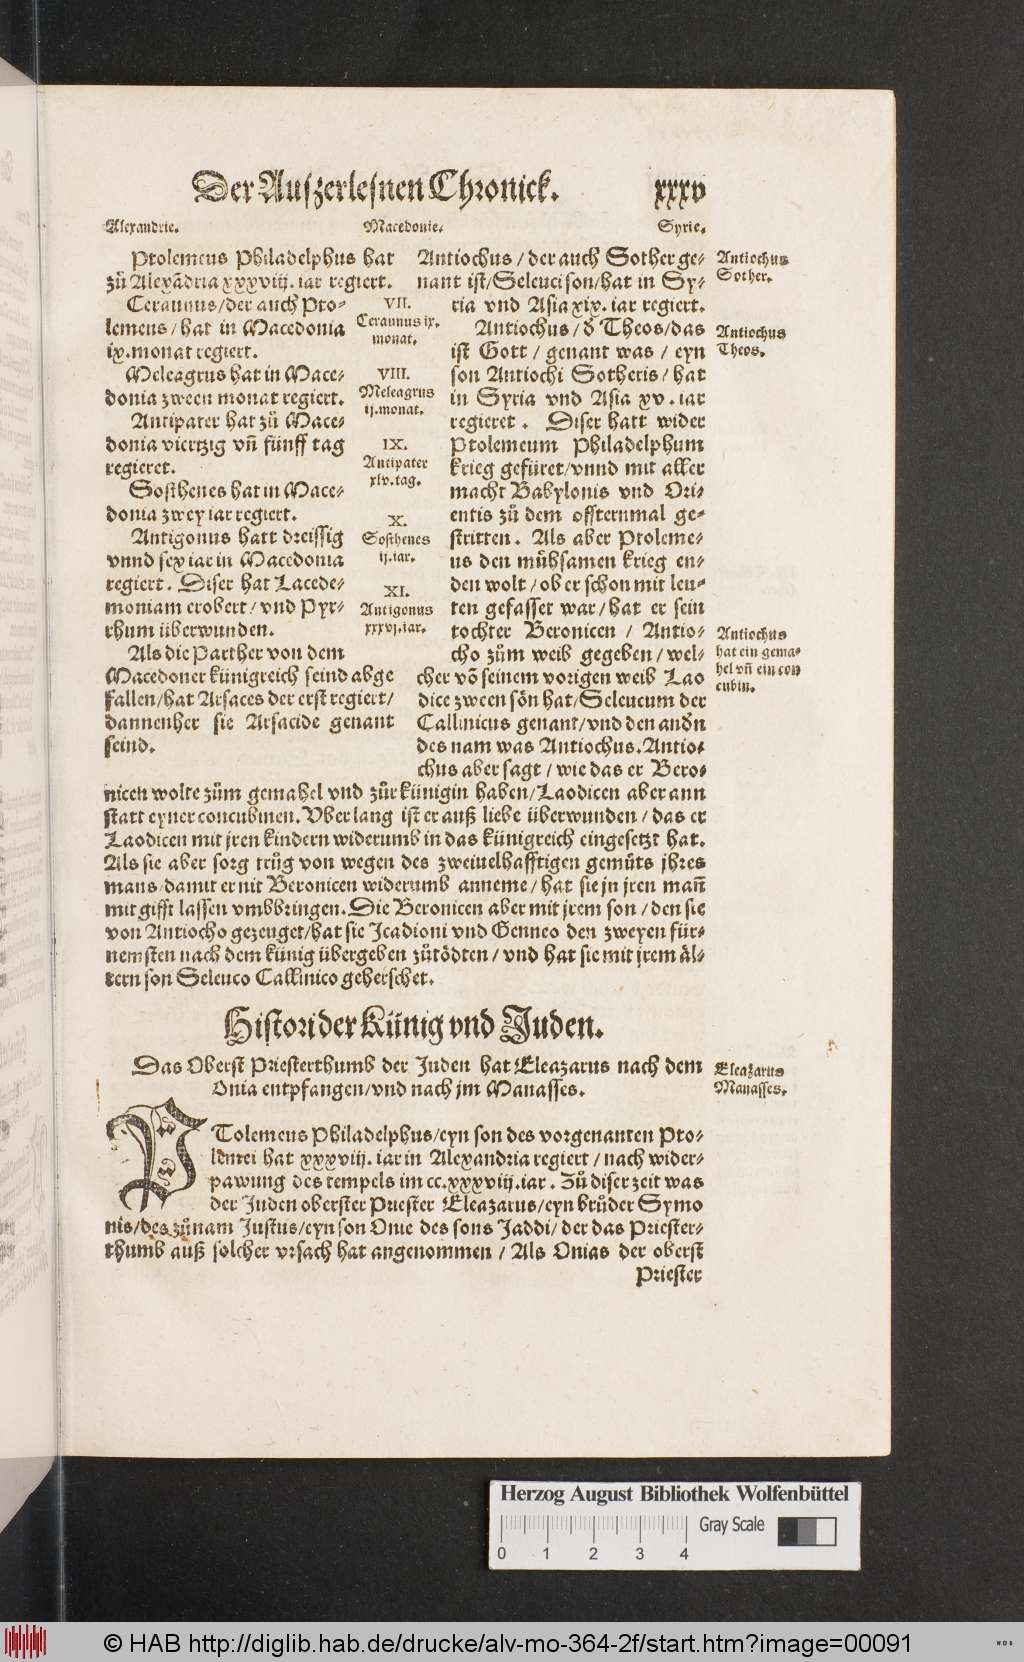 Der Auszerlesnen Chronick. xxxv
Alexandrie. Macedonie. Syrie.
Ptolemeus Philadelphus hat
zů Alexãdria xxxviij. iar regiert.
Ceraunus/der auch Pto-
lemeus/hat in Macedonia
ix.monat regiert.
Meleagrus hat in Mace-
donia zween monat regiert.
Antipater hat zů Mace-
donia viertzig vñ fünff tag
regieret.
Sosthenes hat in Mace-
donia zwey iar regiert.
Antigonus hatt dreissig
vnnd sex iar in Macedonia
regiert. Diser hat Lacede-
moniam erobert/vnd Pyr-
rhum überwunden.
Als die Parther von dem
Macedoner künigreich seind abge
fallen/hat Arsaces der erst regiert/
dannenher sie Arsacide genant
seind.
VII.
Ceraunus ix.
monat.
VIII.
Meleagrus
ij.monat.
IX.
Antipater
xlv.tag.
X.
Sosthenes
ij.iar.
XI.
Antigonus
xxxvj.iar.
Antiochus/der auch Sother ge-
nant ist/Seleuci son/hat in Sy-
ria vnd Asia xix. iar regiert.
Antiochus/d̃ Theos/das
ist Gott/genant was/eyn
son Antiochi Sotheris/hat
in Syria vnd Asia xv. iar
regieret. Diser hatt wider
Ptolemeum Philadelphum
krieg gefüret/vnnd mit aller
macht Babylonis vnd Ori-
entis zů dem offternmal ge-
stritten. Als aber Ptoleme-
us den mühsamen krieg en-
den wolt/ob er schon mit leu-
ten gefasset war/hat er sein
tochter Beronicen/Antio-
cho zům weib gegeben/wel-
cher võ seinem vorigen weib Lao
dice zween sön hat/Seleucum der
Callinicus genant/vnd den andñ
des nam was Antiochus.Antio-
chus aber sagt/wie das er Bero-
Antiochus
Sother.
Antiochus
Theos.
Antiochus
hat ein gema-
hel vñ ein con
cubin.
nicen wolte zům gemahel vnd zůr künigin haben/Laodicen aber ann
statt eyner concubinen. Vber lang ist er auß liebe überwunden/das er
Laodicen mit jren kindern widerumb in das künigreich eingesetzt hat.
Als sie aber sorg trůg von wegen des zweiuelhafftigen gemůts jhres
mans/damit er nit Beronicen widerumb anneme/hat sie jn jren mañ
mit gifft lassen vmbbringen. Die Beronicen aber mit jrem son/den sie
von Antiocho gezeuget/hat sie Icadioni vnd Genneo den zweyen für-
nemsten nach dem künig übergeben zůtödten/vnd hat sie mit jrem äl-
tern son Seleuco Callinico geherschet.
Histori der Künig vnd Juden.
Das Oberst Priesterthumb der Juden hat Eleazarus nach dem
Onia entpfangen/vnd nach jm Manasses.
Eleazarus
Manasses.
PTolemeus Philadelphus/eyn son des vorgenanten Pto-
lemei hat xxxviij. iar in Alexandria regiert/nach wider-
pawung des tempels im cc.xxxviij.iar. Zů diser zeit was
der Juden oberster Priester Eleazarus/eyn brůder Symo
nis/des zůnam Justus/eyn son Onie des sons Jaddi/der das Priester-
thumb auß solcher vrsach hat angenommen/Als Onias der oberst
Priester
Herzog August Bibliothek Wolfenbüttel
Gray Scale
0 1 2 3 4
© HAB http://diglib.hab.de/drucke/alv-mo-364-2f/start.htm?image=00091